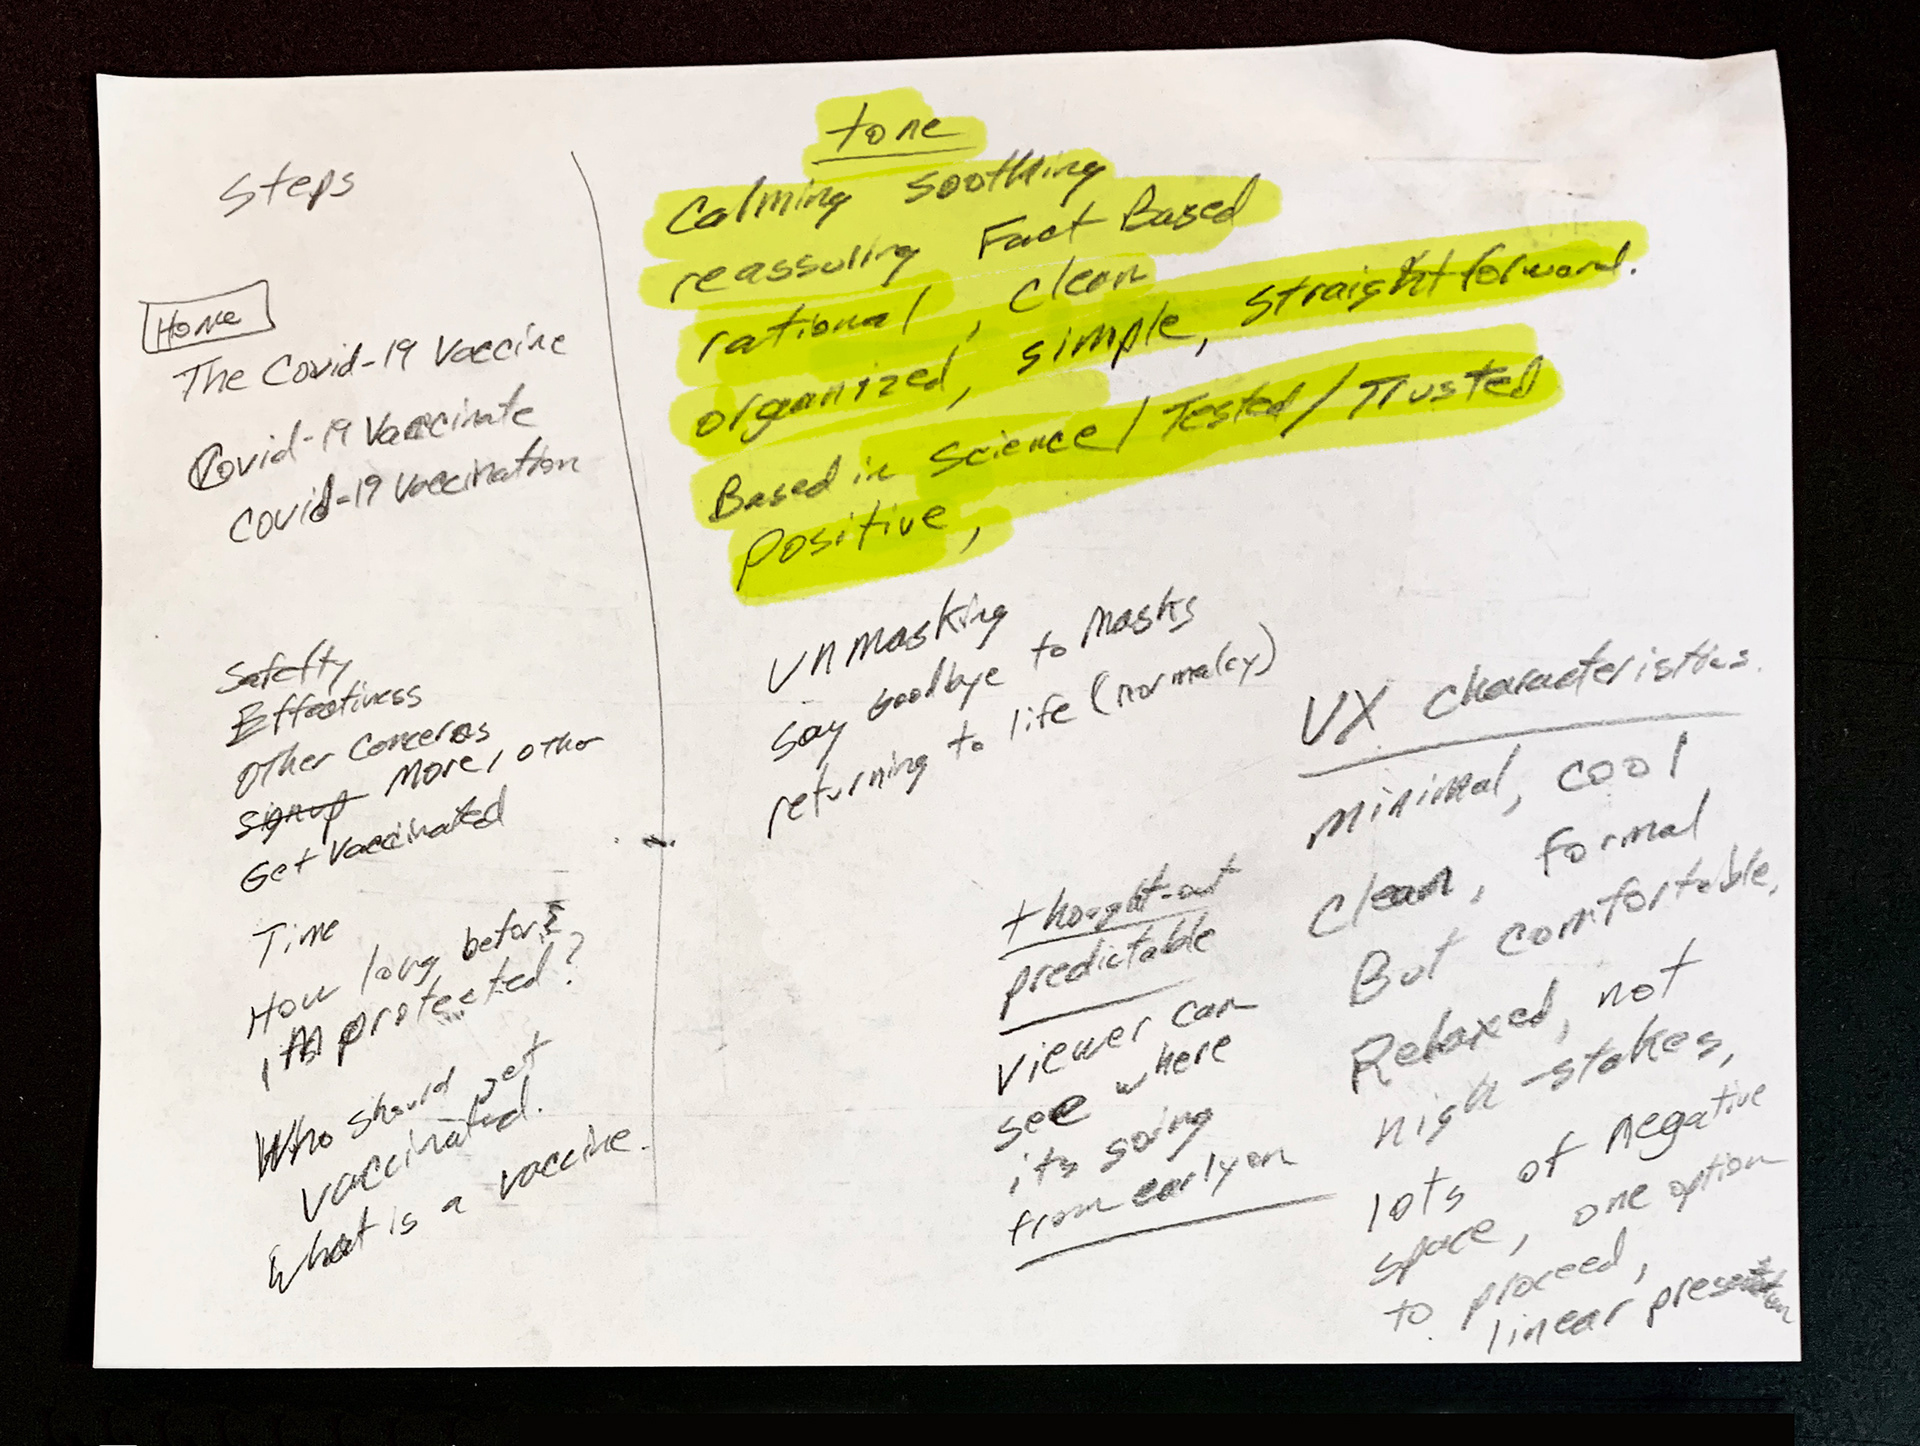 Steps
Home
The Covid-19 Vaccine
Covid-19 Vaccinate
Covid-19 Vaccination
Safefty
Effectiness
other concerns
signup more, other
Get Vaccinated
Time
How long before
I'm protected?
Who should get
vaccinated.
What is a vaccine.
tone
Calming soothing
reassuring Fact Based
rational, clean
organized, simple, straightforward.
Based in Science / Tested / Trusted
positive,
Unmasking
Say Goodbye to Masks
returning to life (normalcy)
thought-out
predictable
Viewer can
see where
its going
from early on
UX characteristics.
minimal, cool
clean, formal
But comfortable,
Relaxed, not
high-stakes,
lots of negative
space, one option
to proceed,
linear presentation